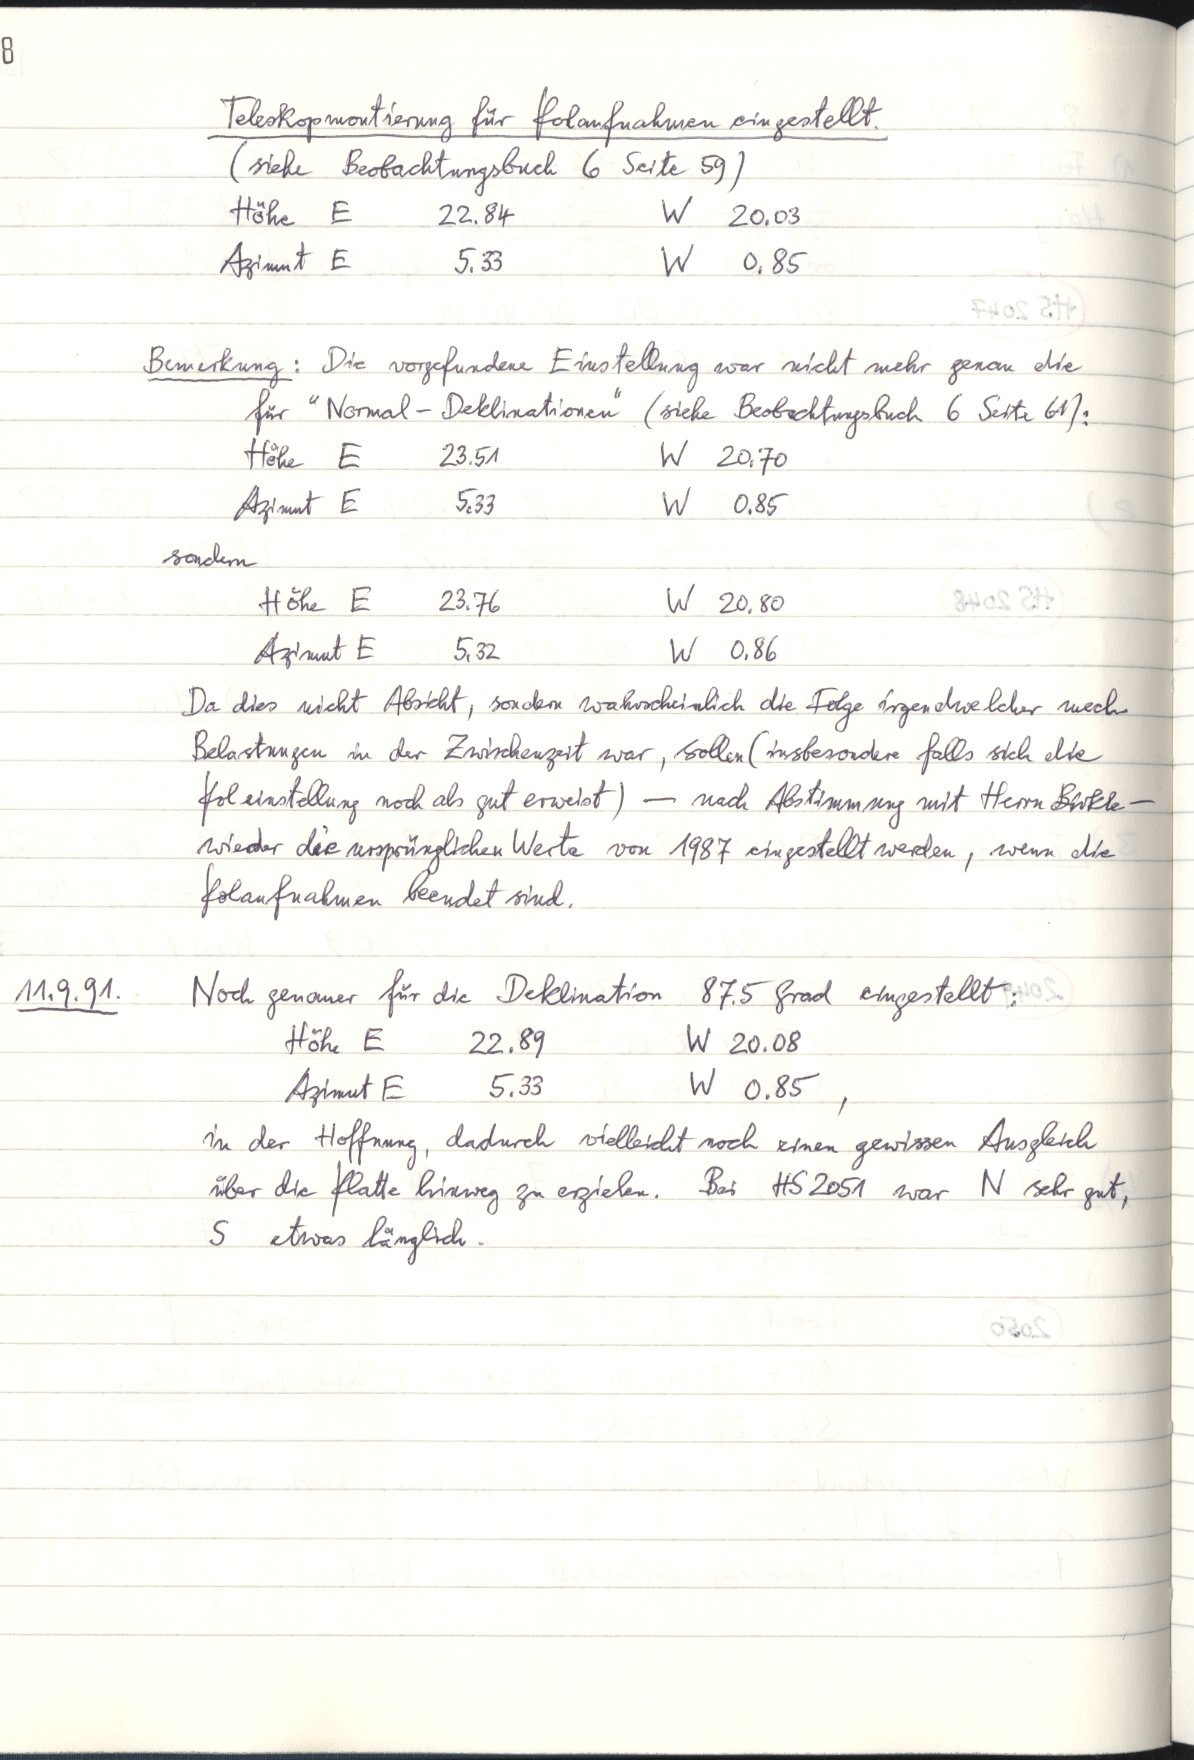 8
Teleskopmontierung für Polaufnahmen eingestellt.
(siehe Beobachtungsbuch 6 Seite 59)
Höhe E 22.84 W 20.03
Azimut E 5.33 W 0.85
Bemerkung: Die vorgefundene Einstellung war nicht mehr genau die
für "Normal-Deklinationen" (siehe Beobachtungsbuch 6 Seite 61):
Höhe E 23.51 W 20.70
Azimut E 5.33 W 0.85
sondern
Höhe E 23.76 W 20.80
Azimut E 5.32 W 0.86
Da dies nicht Absicht, sondern wahrscheinlich die Folge irgendwelcher mech.
Belastungen in der Zwischenzeit war, sollen (insbesondere falls sich die
Poleinstellung noch als gut erweist) — nach Abstimmung mit Herrn Birkle —
wieder die ursprünglichen Werte von 1987 eingestellt werden, wenn die
Polaufnahmen beendet sind.
11.9.91. Noch genauer für die Deklination 87.5 Grad eingestellt:
Höhe E 22.89 W 20.08
Azimut E 5.33 W 0.85,
in der Hoffnung, dadurch vielleicht noch einen gewissen Ausgleich
über die Platte hinweg zu erzielen. Bei HS2051 war N sehr gut,
S etwas länglich.